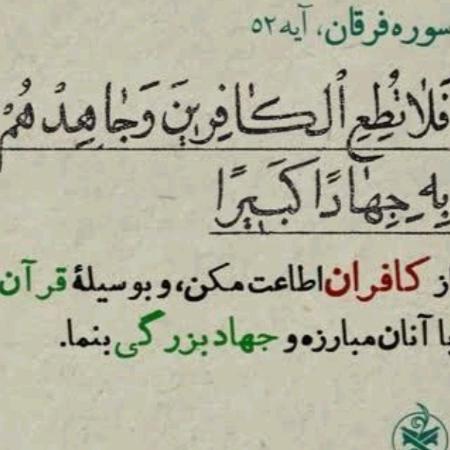 سوره فرقان، آیه ۵۲
فَلَا تُطِعِ ٱلْكَافِرِينَ وَجَاهِدْهُمْ
بِهِ جِهَادًا كَبِيرًا
از کافران اطاعت مکن، و بوسیلهٔ قرآن
با آنان مبارزه و جهاد بزرگی بنما.